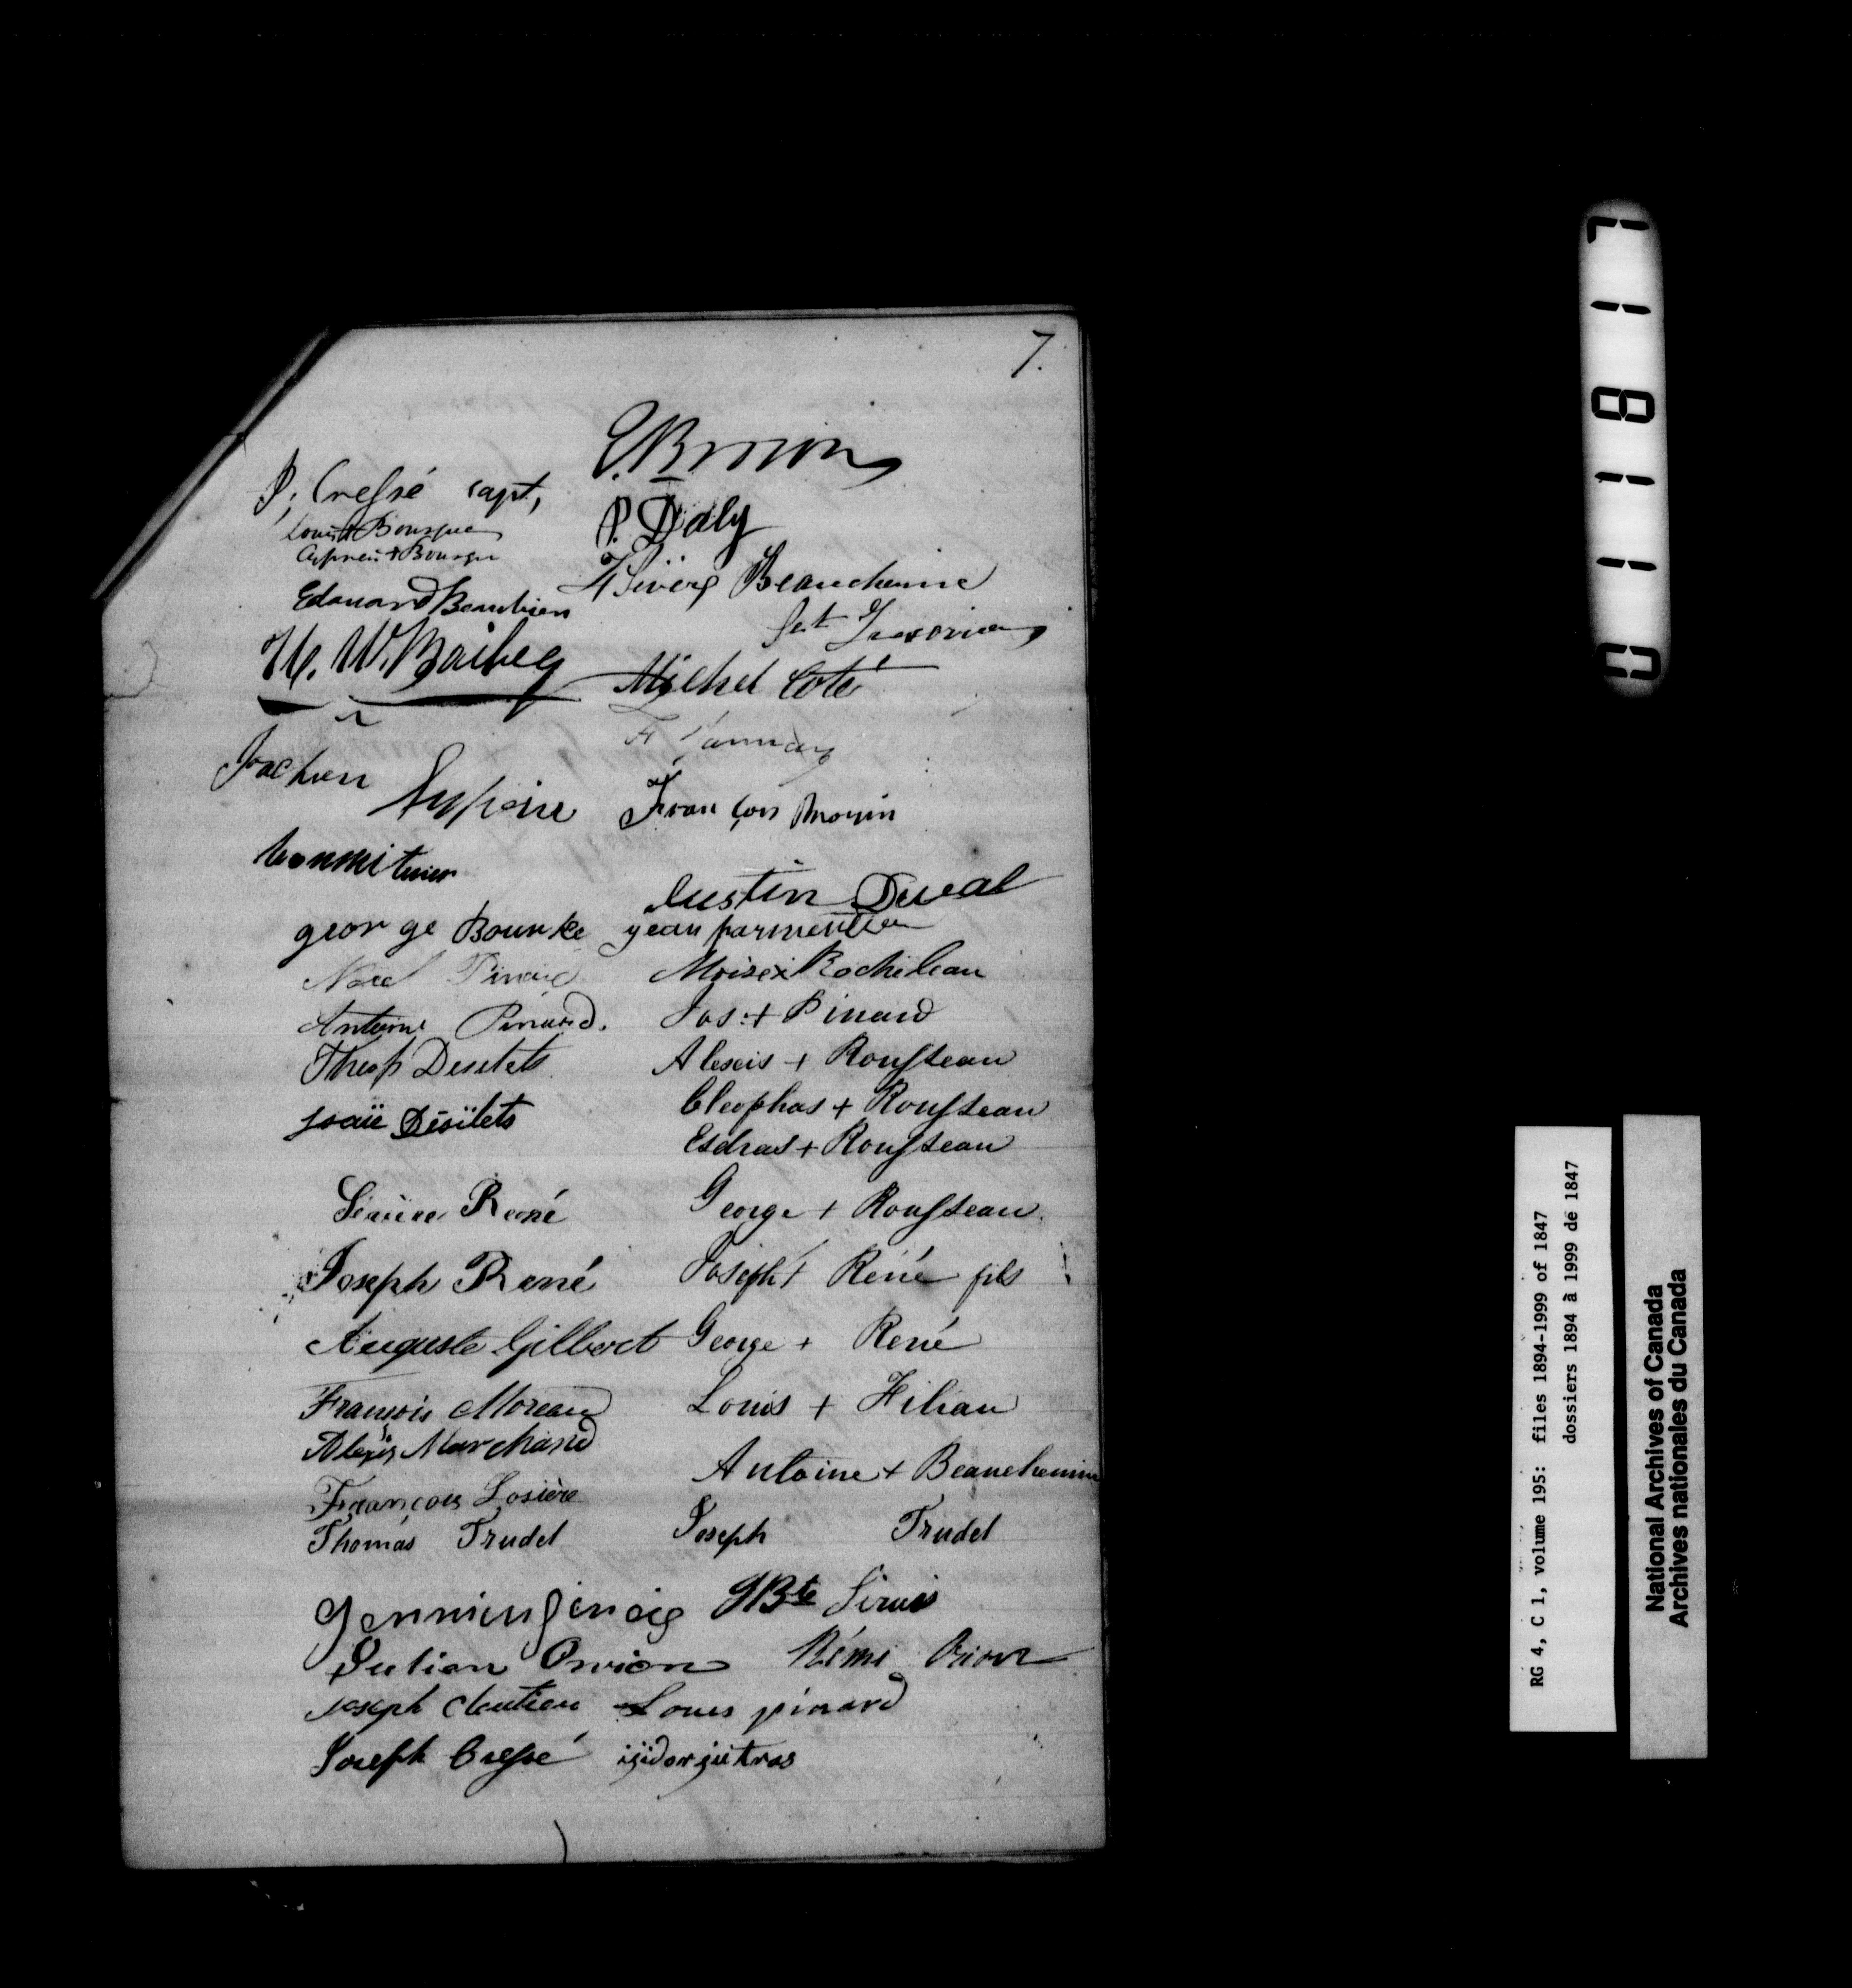 7.
P. Cressé capt,
Louis + Bourque
+ Bourque
Edouard Beaubien
H. W. Bailey
Joachien
george Bourke
Noel Pinard
Antoine Pinard.
Theop Desilets
Désilets
Sévère René
Joseph René
Auguste Gilbert
François Moreau
Alexis Marchand
François Losière
Thomas Trudel
Julien Orion
Joseph Cloutier
Joseph Cressé
P. Daly
Beauchemin
Michel Coté
François Morin
Justin Duval
jean parmentier
Moise x Rocheleau
Jos: + Pinard
Alexis + Rousseau
Cleophas + Rousseau
Esdras + Rousseau
George + Rousseau
Joseph + René fils
George + René
Louis + Hélian
Antoine + Beauchemin
Joseph Trudel
JBte Sirois
Rémi Orion
Louis pinard
isidor jutras
011817
RG 4, C 1, volume 195: files 1894-1999 of 1847
dossiers 1894 à 1999 de 1847
National Archives of Canada
Archives nationales du Canada